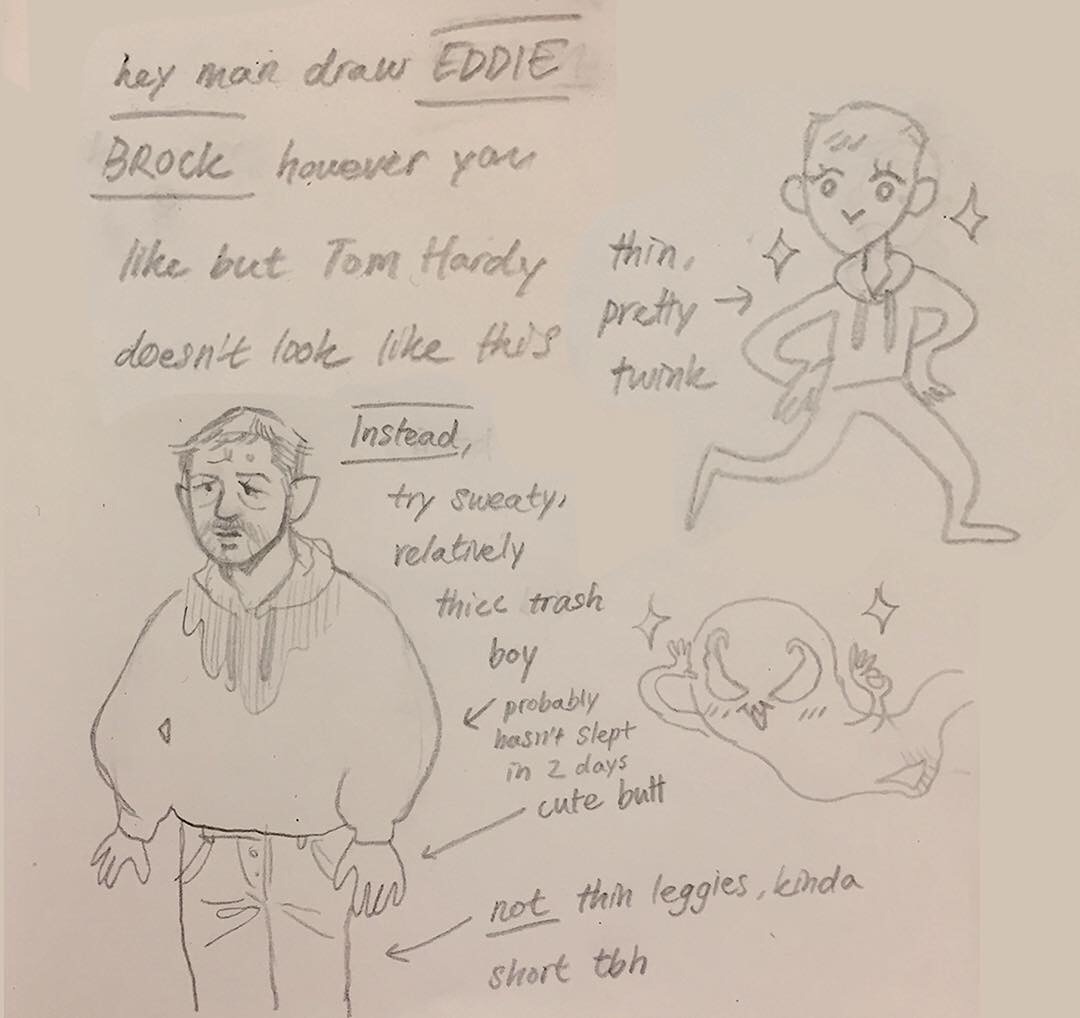 hey man draw EDDIE
BROCK however you
like but Tom Hardy
doesn't look like this
thin,
pretty →
twink
Instead,
try sweaty,
relatively
thicc trash
boy
probably
hasn't slept
in 2 days
cute butt
not thin leggies, kinda
short tbh